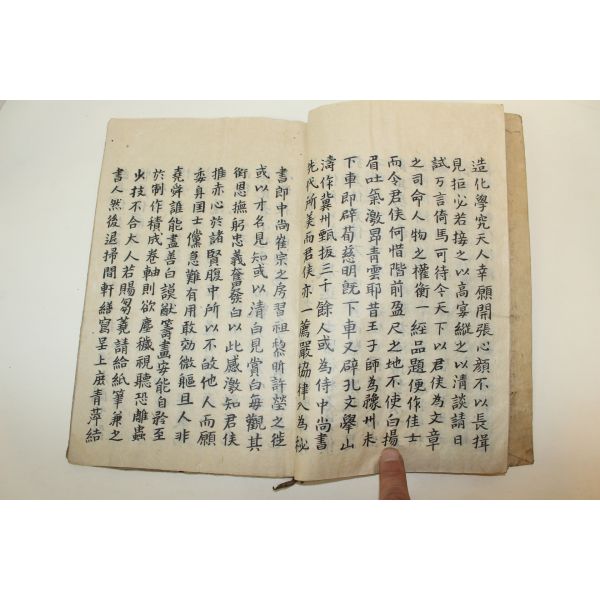 造化學究天人幸願開張心顔不以長揖
見拒必若接之以高宴縱之以清談請日
試万言倚馬可待今天下以君侯為文章
之司命人物之權衡一經品題便作佳士
而今君侯何惜階前盈尺之地不使白揚
眉吐氣激昂青雲耶昔王子師為豫州未
下車即辟荀慈明旣下車又辟孔文擧山
濤作冀州甄拔三十餘人或為侍中尚書
先代所美而君侯亦一薦嚴協律入為秘
書郎中尚崔宗之房習祖黎昕許瑩之徒
或以才名見知或以清白見賞白每觀其
衘恩撫躬忠義奮發白以此感激知君侯
推赤心於諸賢腹中所以不故他人而願
委身国士儻急難有用敢効微軀且人非
堯舜誰能盡善白謨猷籌畫安能自矜至
於制作積成卷軸則欲塵穢視聽恐雕蟲
小技不合大人若賜蒭蕘請給紙筆兼之
書人然後退掃閒軒繕寫呈上庶青萍結